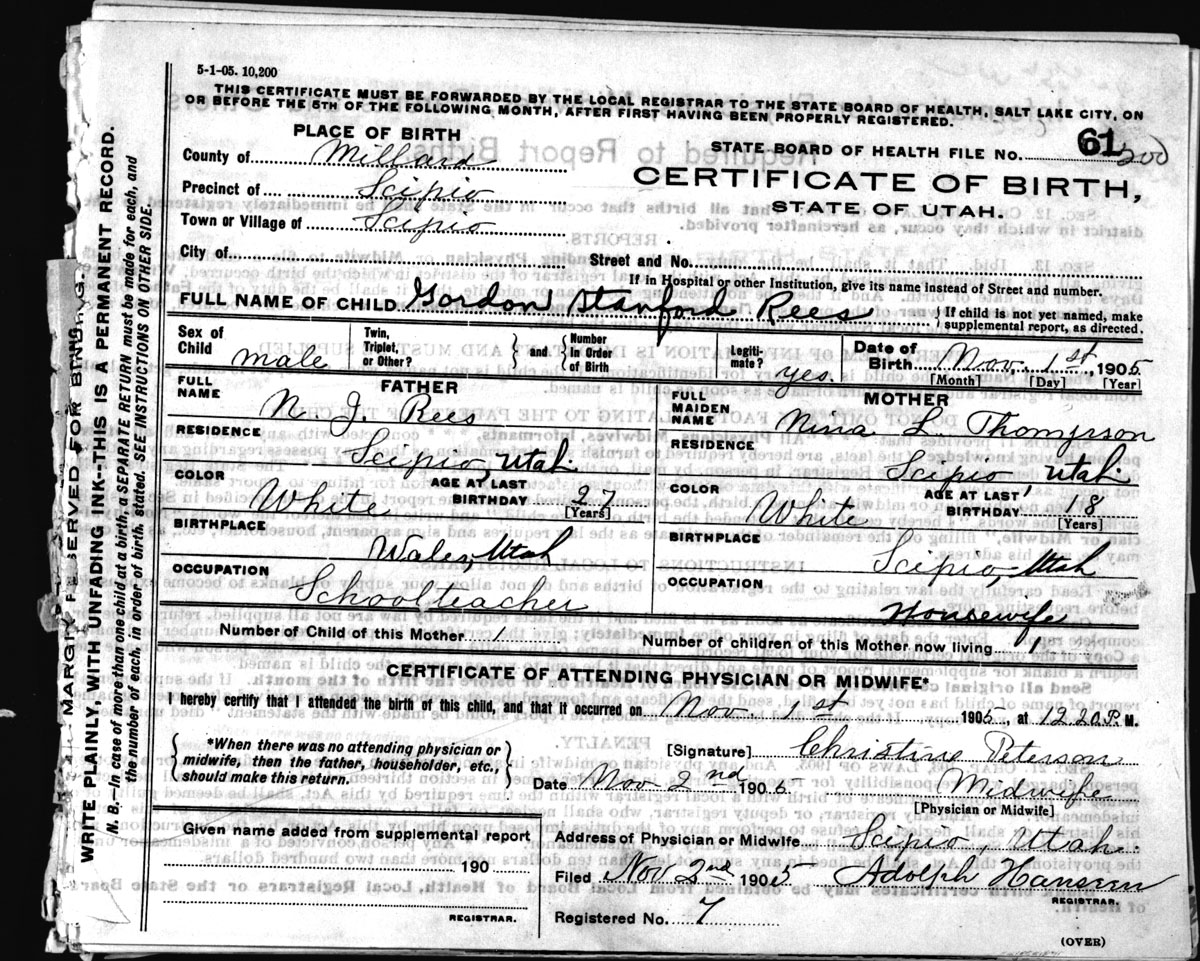 5-1-05. 10,200
THIS CERTIFICATE MUST BE FORWARDED BY THE LOCAL REGISTRAR TO THE STATE BOARD OF HEALTH, SALT LAKE CITY, ON
OR BEFORE THE 5TH OF THE FOLLOWING MONTH, AFTER FIRST HAVING BEEN PROPERLY REGISTERED.
PLACE OF BIRTH
STATE BOARD OF HEALTH FILE NO. 61 200
County of Millard
CERTIFICATE OF BIRTH,
STATE OF UTAH.
Precinct of Scipio
Town or Village of Scipio
City of
Street and No.
If in Hospital or other Institution, give its name instead of Street and number.
FULL NAME OF CHILD Gordon Stanford Rees } If child is not yet named, make supplemental report, as directed.
Sex of Child male Twin, Triplet, or Other? } and { Number in Order of Birth Legiti-mate? yes. Date of Birth Nov. 1st, 1905
[Month] [Day] [Year]
FATHER
FULL NAME N J. Rees
RESIDENCE Scipio, Utah
COLOR White AGE AT LAST BIRTHDAY 27 [Years]
BIRTHPLACE Wales, Utah
OCCUPATION Schoolteacher
MOTHER
FULL MAIDEN NAME Nina L Thompson
RESIDENCE Scipio Utah
COLOR White AGE AT LAST BIRTHDAY 18 [Years]
BIRTHPLACE Scipio, Utah
OCCUPATION Housewife
Number of Child of this Mother 1 Number of children of this Mother now living 1
CERTIFICATE OF ATTENDING PHYSICIAN OR MIDWIFE*
I hereby certify that I attended the birth of this child, and that it occurred on Nov. 1st 1905, at 12 20 P. M.
{ *When there was no attending physician or midwife, then the father, householder, etc., should make this return. }
[Signature] Christine Peterson
Date Nov 2nd 1905 Midwife
[Physician or Midwife]
Given name added from supplemental report
190
REGISTRAR.
Address of Physician or Midwife Scipio, Utah.
Filed Nov 2nd 1905 Adolph Hansen
REGISTRAR.
Registered No. 7
(OVER)
MARGIN RESERVED FOR BINDING.
WRITE PLAINLY, WITH UNFADING INK--THIS IS A PERMANENT RECORD.
N. B.—In case of more than one child at a birth, a SEPARATE RETURN must be made for each, and
the number of each, in order of birth, stated. SEE INSTRUCTIONS ON OTHER SIDE.